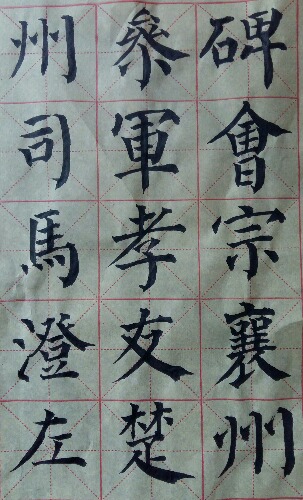 碑會宗襄州
參軍孝友楚
州司馬澄左